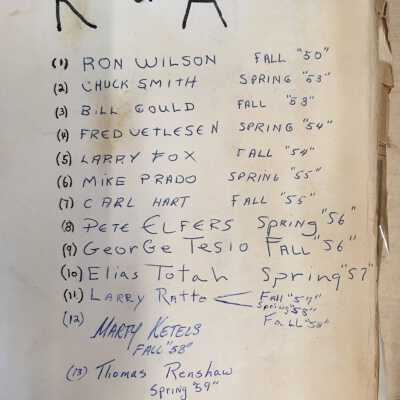 K & A
(1) RON WILSON FALL "50"
(2) CHUCK SMITH SPRING "53"
(3) BILL GOULD FALL "53"
(4) FRED VETLESEN SPRING "54"
(5) LARRY FOX FALL "54"
(6) MIKE PRADO SPRING "55"
(7) CARL HART FALL "55"
(8) PETE ELFERS SPRING "56"
(9) GEORGE TESIO FALL "56"
(10) Elias Totah Spring "57"
(11) LARRY Ratto Fall "57"
Spring "58"
FALL "58"
(12)
MARTY KETELS
FALL "58"
(13) Thomas Renshaw
Spring "59"